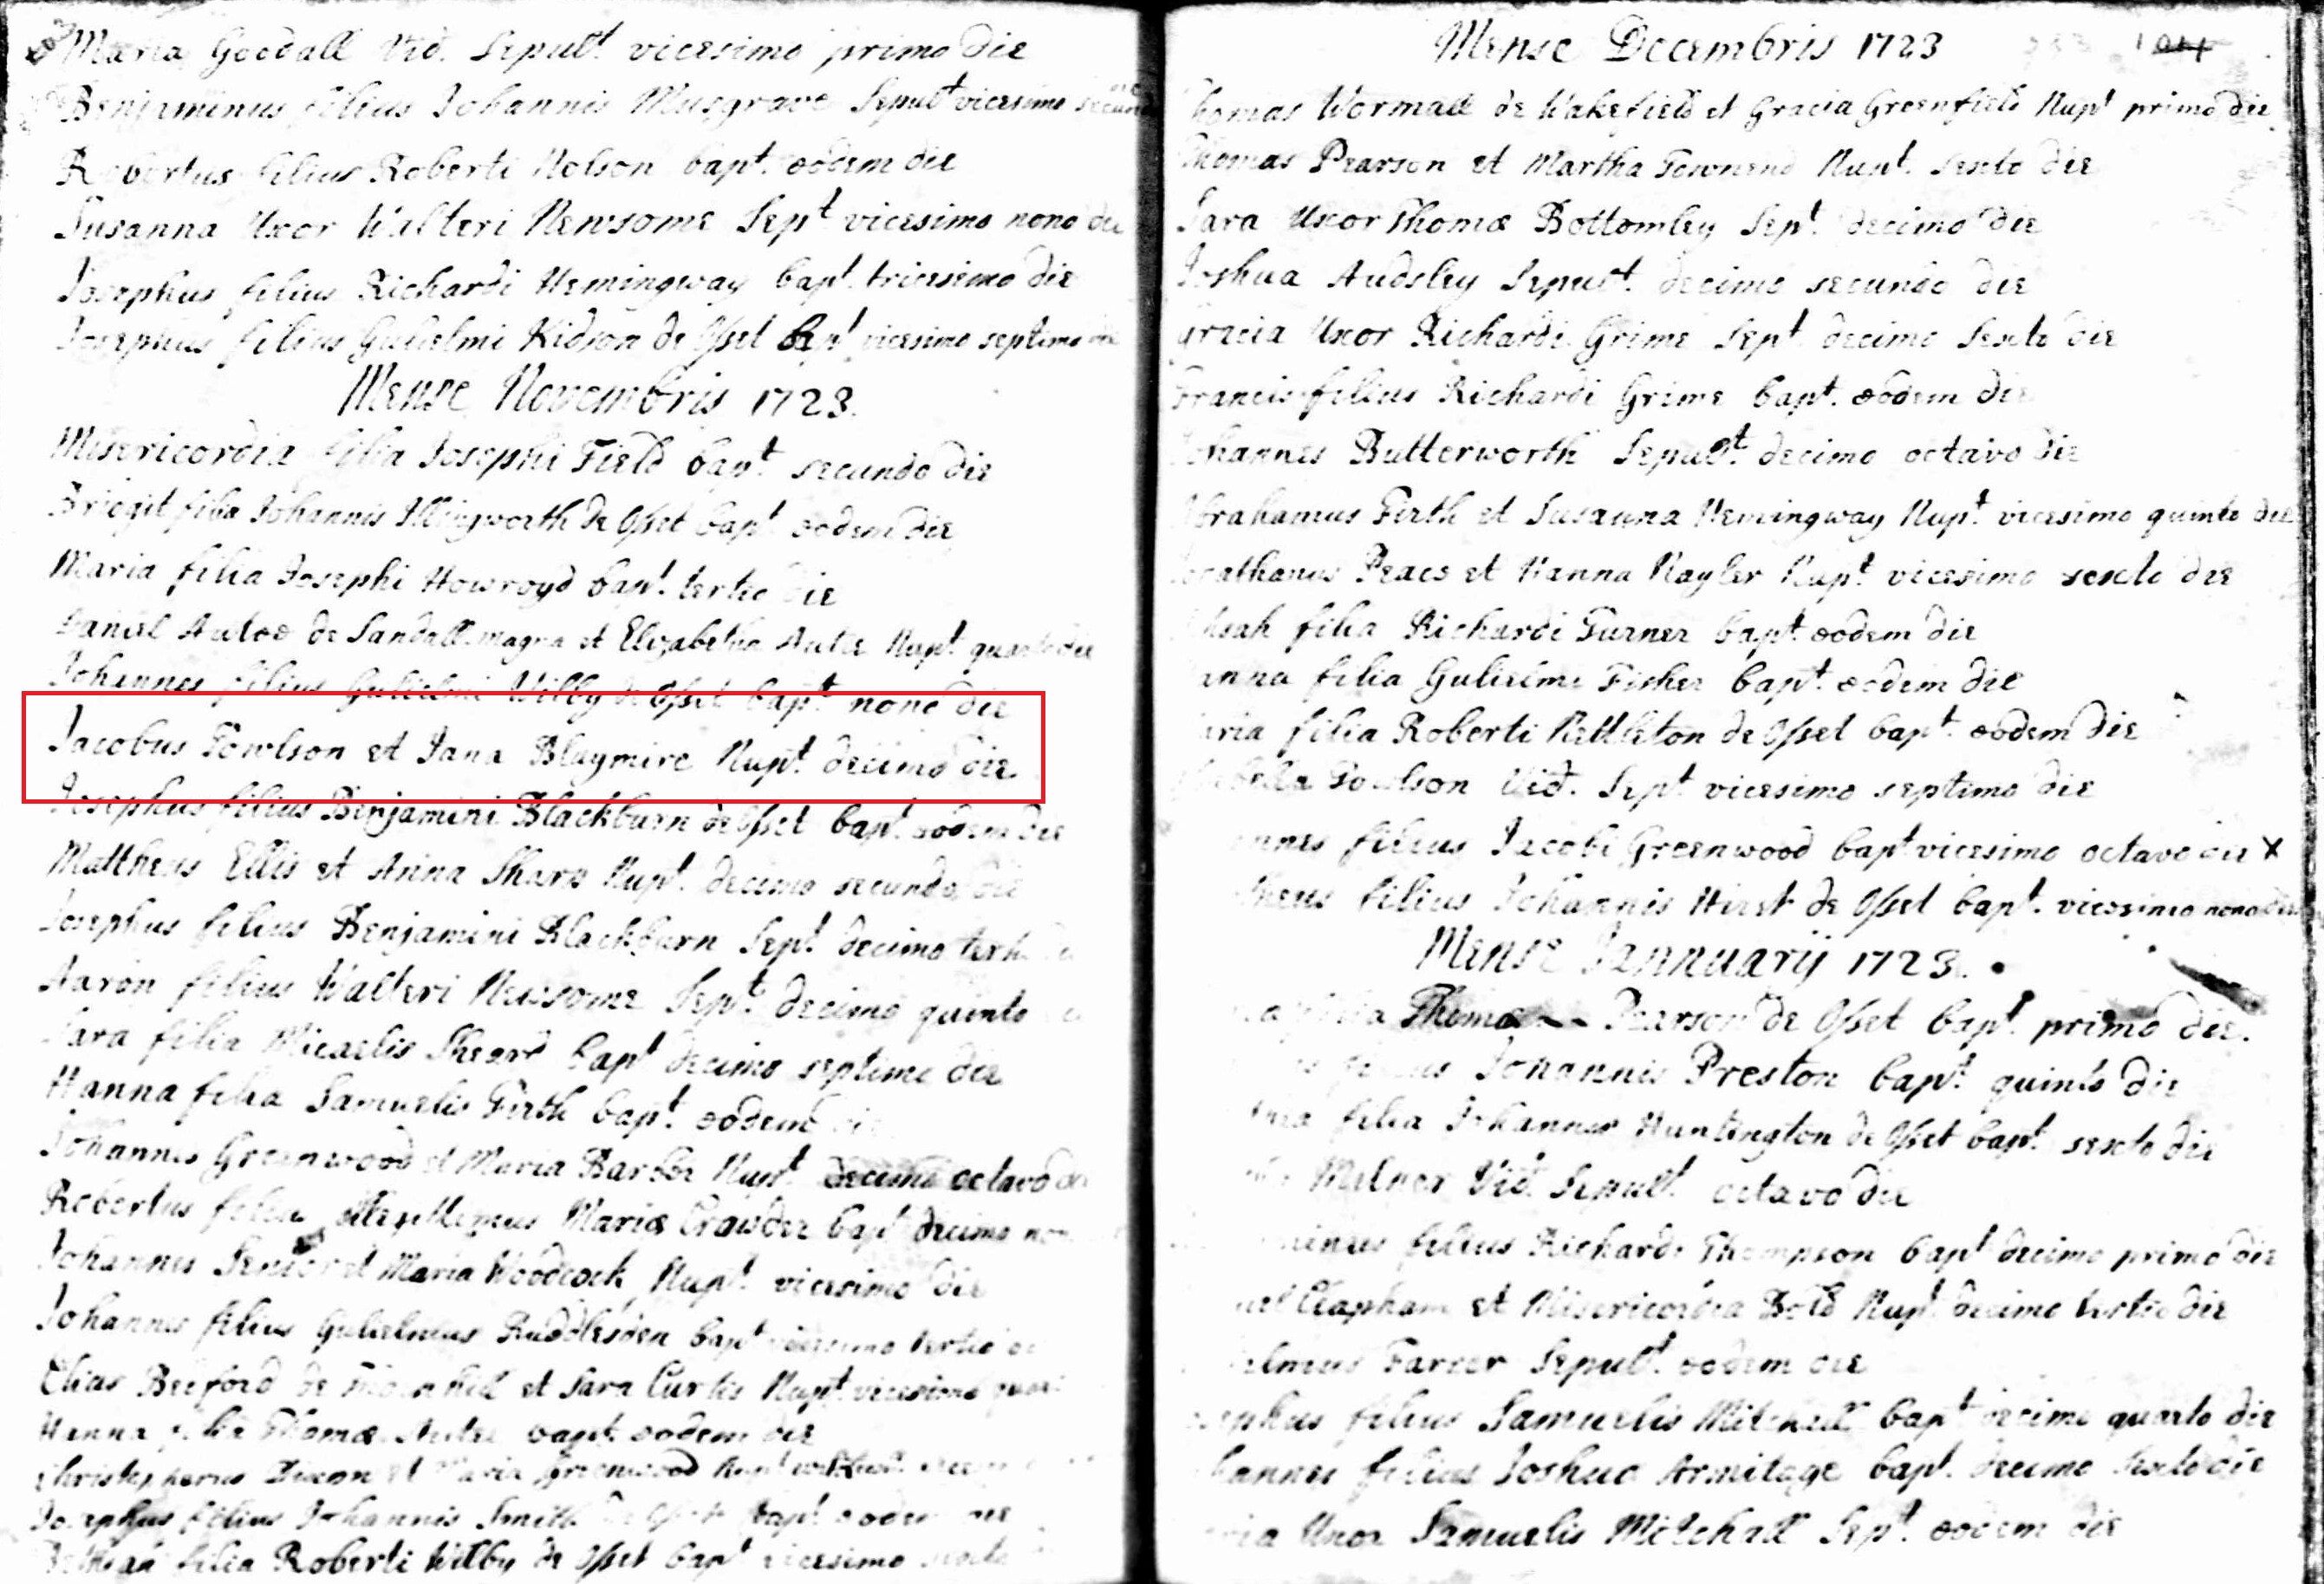 Maria Goodall Vid. Sepult vicesimo primo die
Benjaminus filius Johannis Musgrave Sepult vicesimo secundo
Robertus filius Roberti Nelson bapt. eodem die
Susanna Uxor Walteri Newsome Sept vicesimo nono die
Josephus filius Richardi Hemingway bapt. tricesimo die
Josephus filius Gulielmi Kidson de Osset bapt vicesimo septimo die
Mense Novembris 1723.
Misericordia filia Josephi Field bapt secundo die
Bridgit filia Johannis Illingworth de Osset bapt eodem die
Maria filia Josephi Howroyd bapt. tertio die
Daniel de Sandall magna et Elizabetha Autie Nupt quarto die
Johannes filius Gulielmi Wilby de Osset bapt nono die
Jacobus Towlson et Jana Blaymire Nupt. decimo die
Josephus filius Benjamini Blackburn de Osset bapt. eodem die
Mattheus Ellis et Anna Sharp Nupt. decimo secundo die
Josephus filius Benjamini Blackburn Sept decimo
Aaron filius Walteri Newsome Sept. decimo quinto
Sara filia Micaelis Sheard bapt decimo septimo die
Hanna filia Samuelis Firth bapt. eodem
Johannes Greenwood et Maria Barber Nupt decimo octavo die
Robertus Mariæ Crawder bapt decimo
Johannes Senior et Maria Woodcock Nupt. vicesimo die
Johannes filius Gulielmus Ruddlesden bapt vicesimo tertio
Elias Beeford de et Sara Curtis Nupt. vicesimo
Hanna filia Thomæ bapt. eodem die
Maria Greenwood Nupt
Josephus filius Johannis Smith bapt eodem die
filia Roberti Wilby de Osset bapt vicesimo
Mense Decembris 1723 104
Thomas Wormall de Wakefield et Gracia Greenfield Nupt primo die
Thomas Pearson et Martha Townend Nupt. sexto die
Sara Uxor Thomæ Bottomley Sept. decimo die
Joshua Audsley Sepult. decimo secundo die
Gracia Uxor Richardi Grime Sept decimo Sexto die
Francis filius Richardi Grime bapt. eodem die
Johannes Butterworth Sepult. decimo octavo die
Abrahamus Firth et Susanna Hemingway Nupt. vicesimo quinto die
Jonathanus Peacs et Hanna Nayler Nupt vicesimo sexto die
filia Richardi Turner bapt. eodem die
anna filia Gulielmi Fisher bapt. eodem die
aria filia Roberti Nettleton de Osset bapt. eodem die
Vid. Sept vicesimo septimo die
annes filius Jacobi Greenwood bapt vicesimo octavo die X
theus filius Johannis Hirst de Osset bapt. vicesimo nono die
Mense Jannuarij 1723.
Thomæ Pearson de Osset bapt. primo die.
Johannis Preston bapt. quinto die
filia Johannis Huntington de Osset bapt. sexto die
Milner Vid. Sepult. octavo die
filius Richardi Thompson bapt decimo primo die
Clapham et Misericordia Nupt. decimo tertio die
elmus Farrer Sepult. eodem die
ephus filius Samuelis Mitchell bapt decimo quarto die
hannes filius Joshua Armitage bapt. decimo Sexto die
ria Uxor Samuelis Mitchall Sept. eodem die